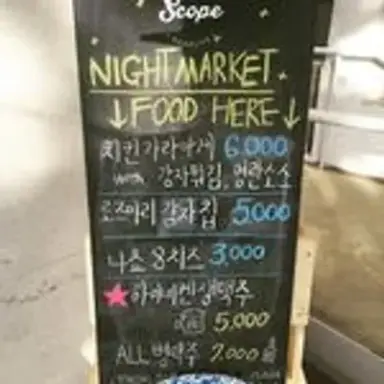 Scope
NIGHT MARKET
↓FOOD HERE↓
치킨가라아게 6,000
with 감자튀김, 명란소스
로즈마리 감자칩 5,000
나쵸 & 치즈 3,000
★ 생맥주
5,000
ALL 병맥주 7,000